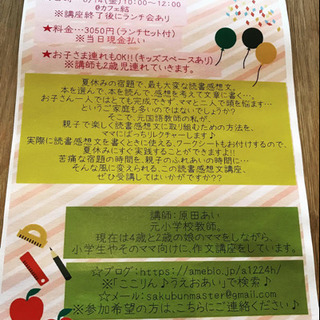 8/14(金)10:00~12:00
@カフェ結
※講座終了後にランチ会あり
★料金…3050円(ランチセット付)
※当日現金払い
★お子さま連れもOK!!(キッズスペースあり)
※講師も2歳児連れていきます。
夏休みの宿題で、最も大変な読書感想文。
本を選んで、本を読んで、感想を考えて文章に書く…。
お子さん一人ではとても完成できず、ママと二人で頭を悩ます…
という家庭も多いのではないでしょうか?
そこで、元国語教師の私が、
親子で楽しく読書感想文に取り組むための方法を、
ママにばっちりレクチャーします♪
実際に読書感想文を書くときに使える、ワークシートもお付けするので、
夏休みにすぐ実践することができますよ!!
苦痛な宿題の時間を、親子のふれあいの時間に…
そんな風に変えられる、この読書感想文講座、
ぜひ受講してはいかがですか??
講師:原田あい
元小学校教師。
現在は4歳と2歳の娘のママをしながら、
小学生やそのママ向けに、作文講座をしています。
☆ブログ:https://ameblo.jp/a1224h/
※「ここりん♪うえおあい」で検索♪
☆メール:sakubunmaster@gmail.com
※参加希望の方は、こちらにご連絡ください♪